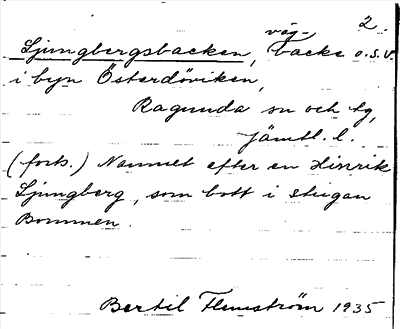 2.
Ljungbergsbacken, väg-backe o.s.v.
i byn Österdöviken,
Ragunda sn och tg,
Jämtl. l.
(forts.) Namnet efter en Hinrik
Ljungberg, som bott i stugan
Bommen.
Bertil Flemström 1935